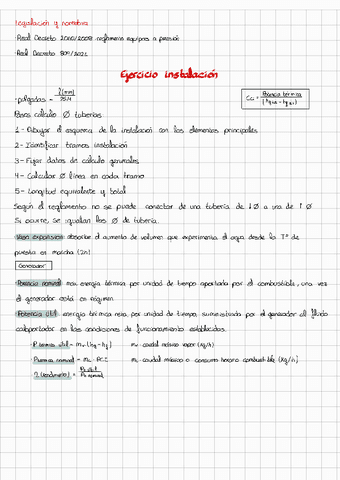 Legislación y normativa
Real Decreto 2060/2008 reglamento equipos a presión
Real Decreto 809/2021
Ejercicio instalación
· pulgadas =
Pasos cálculo Ø tuberías
Cc = Potencia térmica
1 - Dibujar el esquema de la instalación con los elementos principales
2 - Identificar tramos instalación
3 - Fijar datos de cálculo generales
4 - Calcular Ø línea en cada tramo
5 - Longitud equivalente y total
Según el reglamento no se puede conectar de una tubería de ↓Ø a una de ↑Ø
Si ocurre, se igualan los Ø de tubería.
Vaso expansión: absorber el aumento de volumen que experimenta el agua desde la Tª de
puesta en marcha (2n)
Generador
· Potencia nominal: max energía térmica por unidad de tiempo aportada por el combustible, una vez
el generador está en régimen
· Potencia útil: energía térmica neta, por unidad de tiempo, suministrada por el generador al fluido
caloportador en las condiciones de funcionamiento establecidas.
· P térmica útil = mv (hg - hf) mv caudal másico vapor (kg/h)
· P térmica nominal = mc · PCI mc caudal másico o consumo horario combustible (kg/h)
· η (rendimiento) = P útil / P nominal